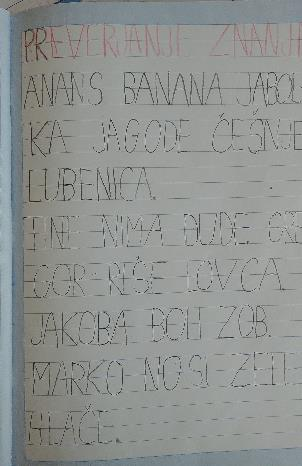 PREVERJANJE ZNANJA
ANANS BANANA JABOL
KA JAGODE ČEŠNJE
LUBENICA.
TINE NIMA DUDE.
GOR RIŠE LOVCA.
JAKOBA BOLI ZOB.
MARKO NOSI ZELE
HLAČE.